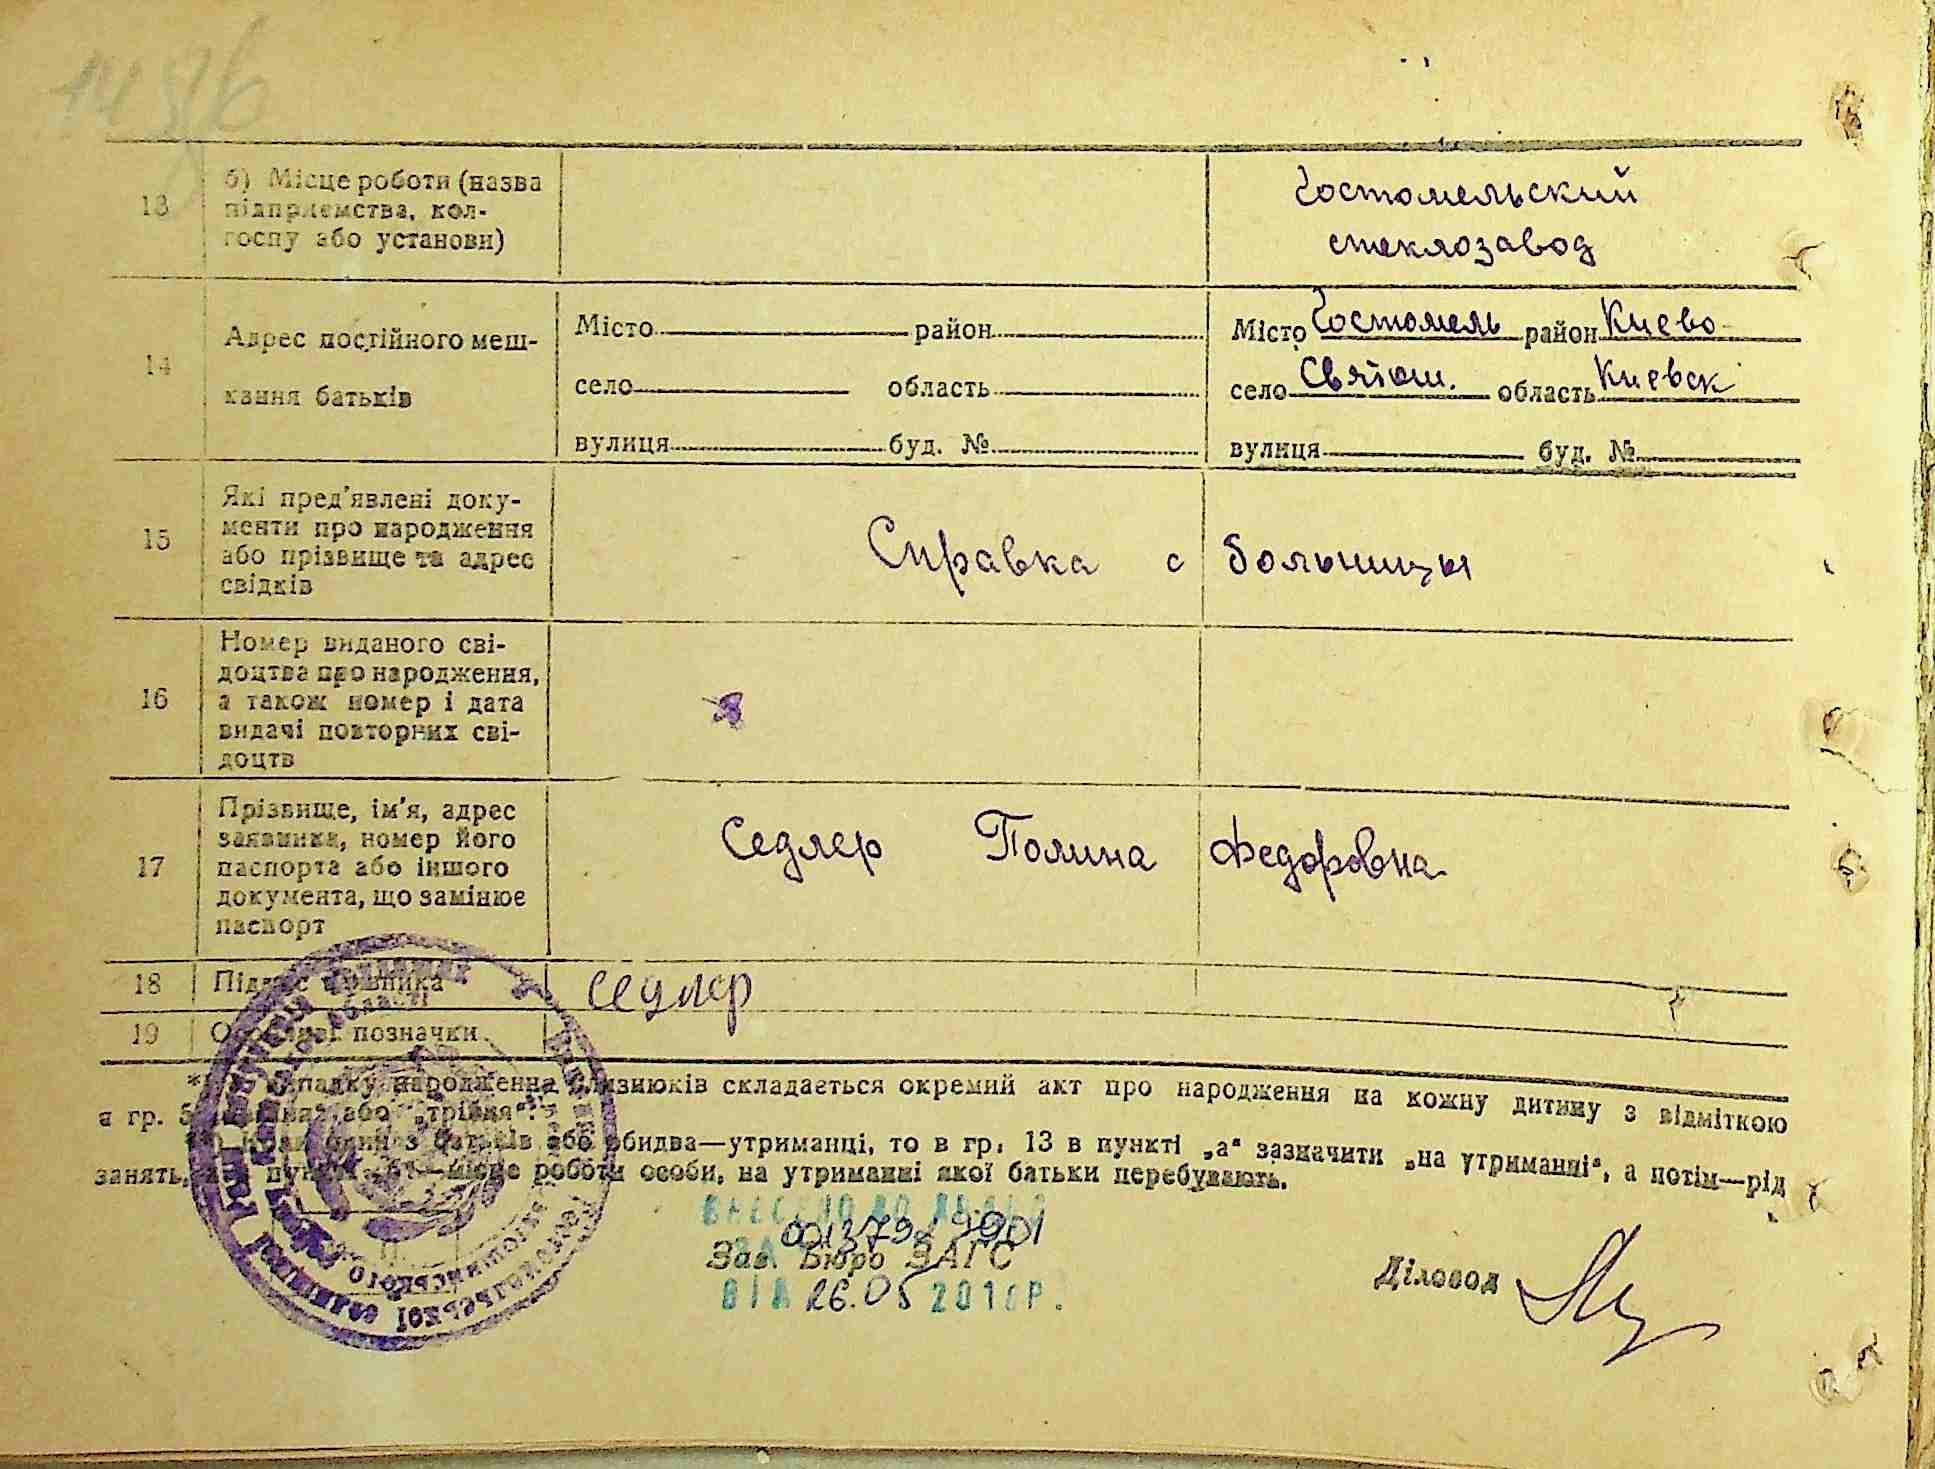 1486
13 б) Місце роботи (назва підприємства, колгоспу або установи)
Гостомельский
стеклозавод
14 Адрес постійного мешкання батьків
Місто район
село область
вулиця буд. №
Місто Гостомель район Киево
село Святош. область Киевск
вулиця буд. №
15 Які пред'явлені документи про народження або прізвище та адрес свідків
Справка с больницы
16 Номер виданого свідоцтва про народження, а також номер і дата видачі повторних свідоцтв
17 Прізвище, ім'я, адрес заявника, номер його паспорта або іншого документа, що замінює паспорт
Седлер Полина Федоровна
18 Підпис заявника
Седлер
19 Особливі позначки
*) У випадку народження близнюків складається окремий акт про народження на кожну дитину з відміткою
в гр. 5 „двійня“ або „трійня“.
**) Коли один з батьків або обидва—утриманці, то в гр. 13 в пункті „а“ зазначити „на утриманні“, а потім—рід
занять, а в пункті „б“—місце роботи особи, на утриманні якої батьки перебувають.
ВНЕСЕНО ДО
Зав. Бюро ЗАГС
ВІД 26.05 201 Р.
Діловод